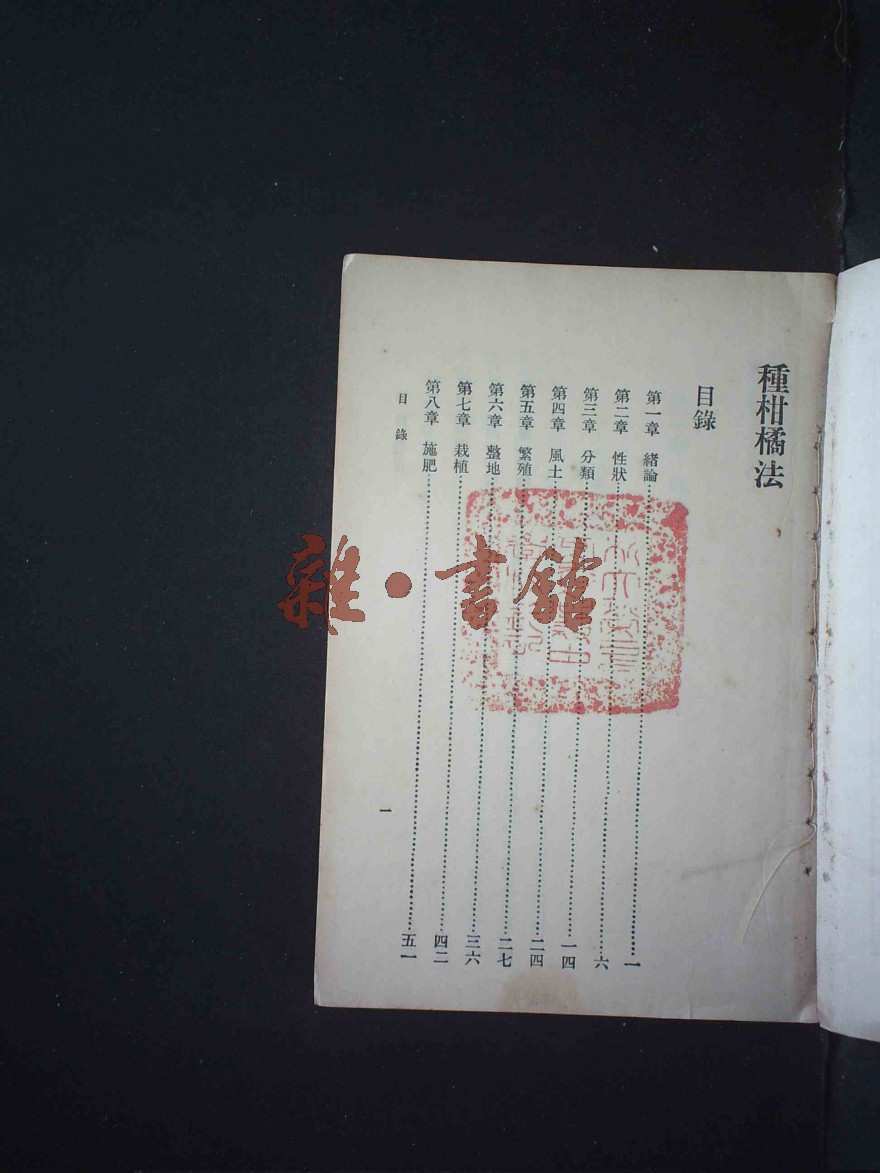 種柑橘法
目錄
第一章 緒論……一
第二章 性狀……六
第三章 分類……一四
第四章 風土……二四
第五章 繁殖……二七
第六章 整地……三六
第七章 栽植……四二
第八章 施肥……五一
目錄
一
雜·書館